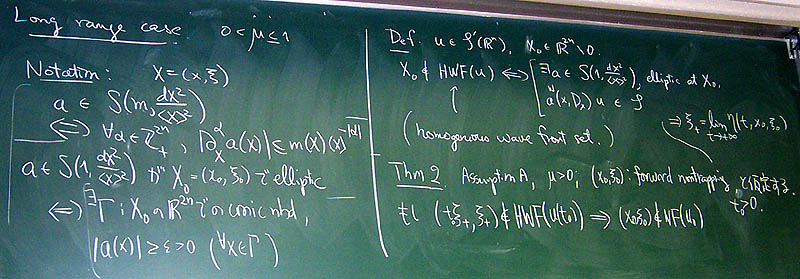 Long range case. 0<μ≤1
Notation: X=(x,ξ)
a ∈ S(m, dX²/<X>²)
⇔ ∀α∈ℤ₊²ⁿ, |∂_X^α a(X)| ≤ m(X)<X>^{-|α|}
a ∈ S(1, dX²/<X>²) が X₀=(x₀,ξ₀) で elliptic
⇔ ∃Γ: X₀ の ℝ²ⁿ での conic nbd,
|a(X)| ≥ ε>0 (∀X∈Γ)
Def. u ∈ S'(ℝⁿ), X₀∈ℝ²ⁿ\0.
X₀ ∉ HWF(u) ⇔ ∃a∈S(1, dX²/<X>²), elliptic at X₀,
a^w(x,Dₓ) u ∈ S
(homogeneous wave front set.)
⇒ ξ₊ = lim_{t→+∞} η(t,x₀,ξ₀)
Thm 2 Assumption A, μ>0, (x₀,ξ₀): forward nontrapping と仮定する.
t₀>0.
もし (t₀ξ₊,ξ₊)∉HWF(u(t₀)) ⇒ (x₀,ξ₀)∉WF(u₀)